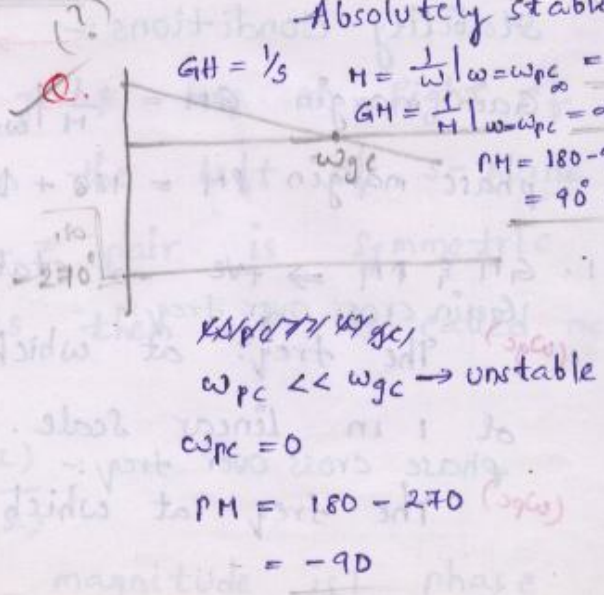 (?)
Absolutely stable
Q.
GH = 1/s
M = 1/ω | ω=ωpc =
∞
GM = 1/M | ω=ωpc =
ωgc
PM = 180-
= 90°
-270°
ωpc << ωgc → unstable
ωpc = 0
PM = 180 - 270
= -90